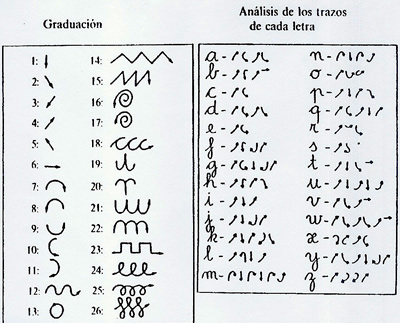 Graduación
1:
2:
3:
4:
5:
6:
7:
8:
9:
10:
11:
12:
13:
14:
15:
16:
17:
18:
19:
20:
21:
22:
23:
24:
25:
26:
Análisis de los trazos
de cada letra
a -
b -
c -
d -
e -
f -
g -
h -
i -
j -
k -
l -
m -
n -
o -
p -
q -
r -
s -
t -
u -
v -
w -
x -
y -
z -